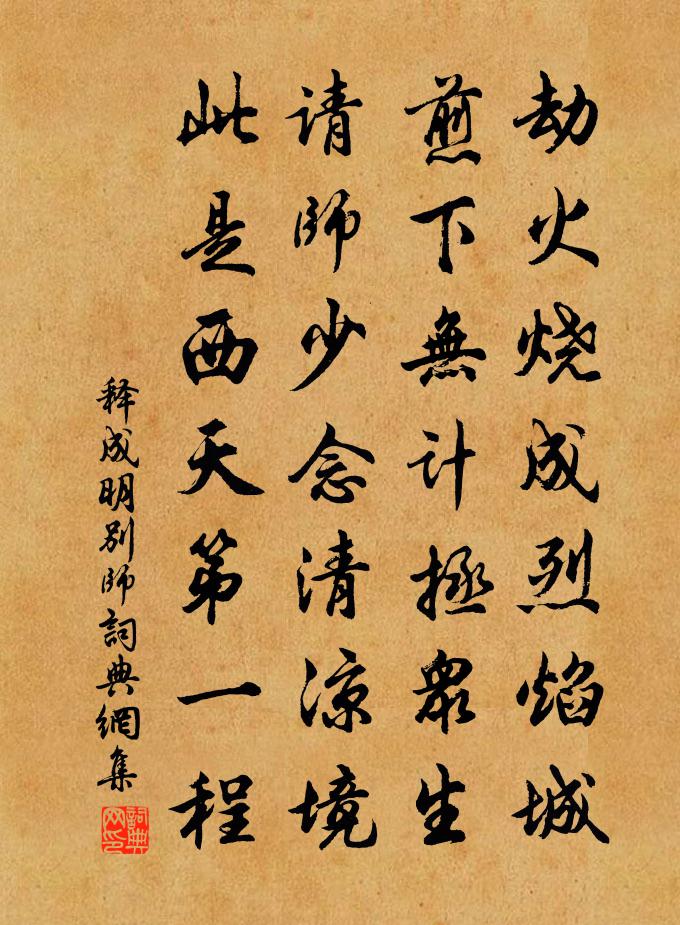 劫火烧成烈焰城
煎下無计拯眾生
请師少念清涼境
此是西天第一程
释成明别師詞典網集
詞典网印